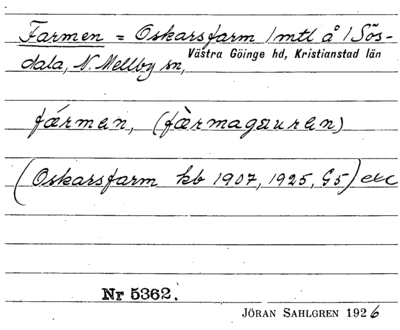 Farmen = Oskarsfarm / mtl å / Sös-
dala, N. Mellby sn, Västra Göinge hd, Kristianstad län
fármen, (fàrmagæuren)
(Oskarsfarm kb 1907, 1925, G5) etc
Nr 5362.
JÖRAN SAHLGREN 1926